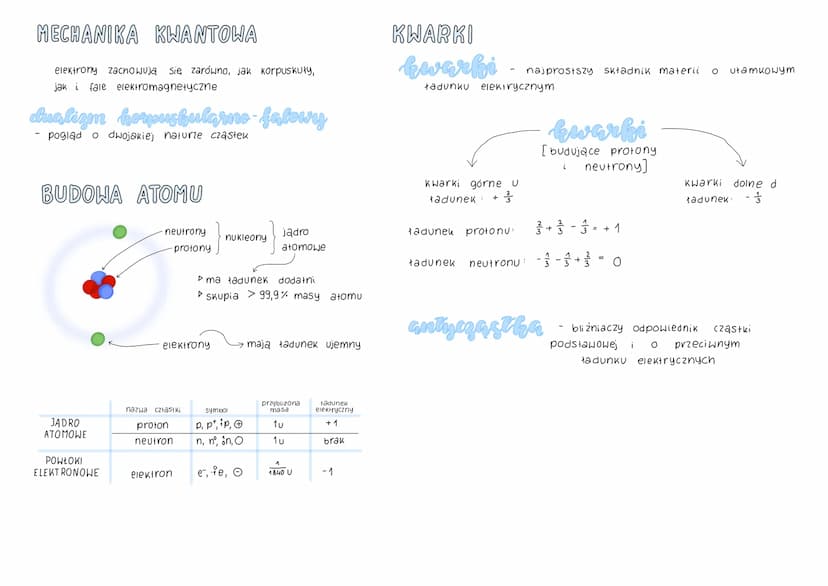 MECHANIKA KWANTOWA
elektrony zachowują się zarówno, jak korpuskuły,
jak i fale elektromagnetyczne
dualizm korpuskularno-falowy
- pogląd o dwojakiej naturze cząstek
BUDOWA ATOMU
neutrony
protony
nukleony
jądro
atomowe
▹ ma ładunek dodatni
▹ skupia > 99,9% masy atomu
elektrony → mają ładunek ujemny
nazwa cząstki symbol przybliżona masa ładunek elektryczny
JĄDRO ATOMOWE
proton p, p⁺, ¹₁p, ⊕ 1u +1
neutron n, n⁰, ¹₀n, O 1u brak
POWŁOKI ELEKTRONOWE
elektron e⁻, ⁰₋₁e, ⊖ 1/1840 u -1
KWARKI
kwarki - najprostszy składnik materii o ułamkowym
ładunku elektrycznym
kwarki
[budujące protony
i neutrony]
kwarki górne u
ładunek: + 2/3
kwarki dolne d
ładunek: - 1/3
ładunek protonu: 2/3 + 2/3 - 1/3 = +1
ładunek neutronu: -1/3 - 1/3 + 2/3 = 0
antycząstka - bliźniaczy odpowiednik cząstki
podstawowej i o przeciwnym
ładunku elektrycznych